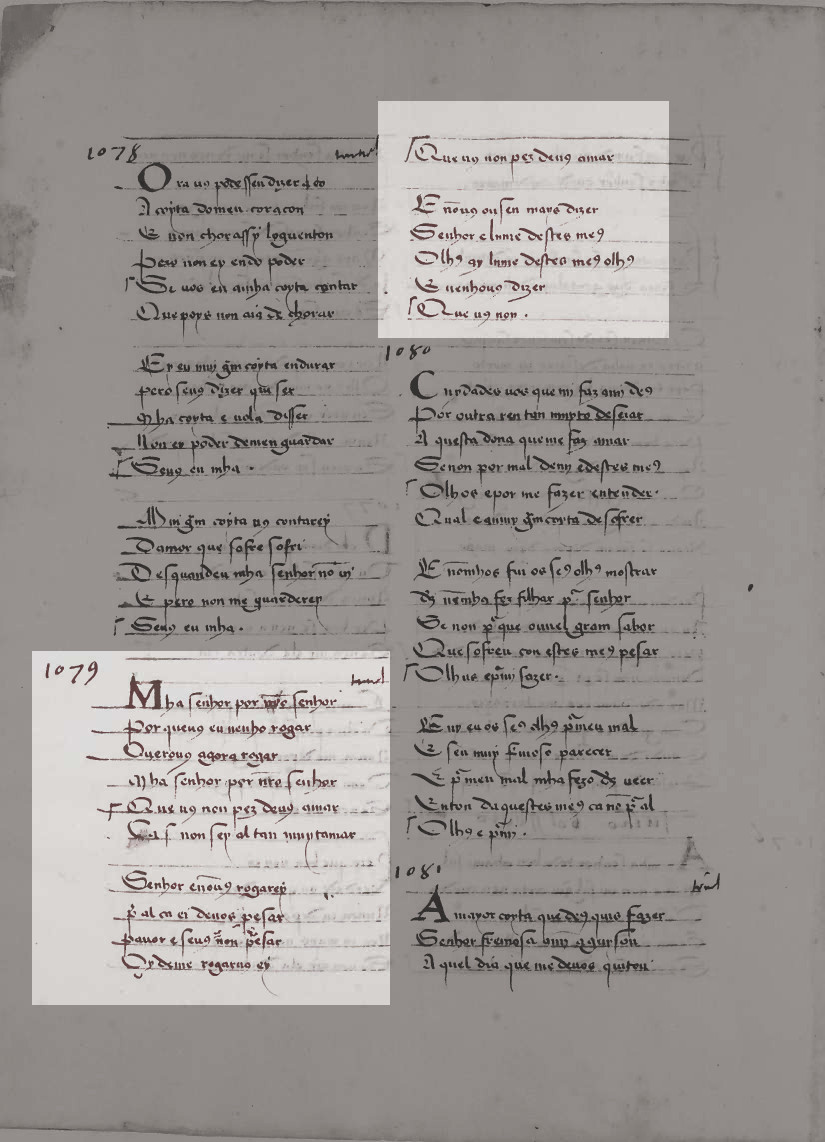 1078
Ora us podessen dizer q̃ eo
A coyta domeu coraçon
E non chorassy logu enton
Pero non ey endo poder
Se vos eu minha coyta contar
Que poys non aia de chorar
Ey eu muy gm̃ coyta endurar
pero seus dizer qm̃ ser
Mha coyta e uola disser
Non ey poder demen guardar
Seus eu mha .
Mui gm̃ coyta us contarey
Damor que sofre sofri
Desquandeu mha senhor nō ui
E pero non me guarderey
Seus eu mha .
1079
Mha senhor por senhor
Por queus eu uenho rogar
Querous agora rogar
Mha senhor por nr̃o senhor
Que us non pez deus amar
non sey al tan muytamar
Senhor enouꝰ rogarey
p̃ al ca ei deuos pesar
pauor e seus non pesar
Oy deme rogaruo ey
Que us non pez deuꝰ amar
E nōuꝰ ousen mays dizer
Senhor e lume destes meꝰ
Olhꝰ ay lume destes meꝰ olhꝰ
E uenhouꝰ dizer
Que us non .
1080
Cuydades uos que mi faz ami deꝰ
Por outra ren tan muyto deseiar
A questa dona que me faz amar
Se non por mal demi e destes meꝰ
Olhos e por me fazer entender.
Qual e aminy gm̃ coyta de sofrer
E nōmhos fui os seꝰ olhꝰ mostrar
ds̃ nēmha fez filhar p̃ senhor
Se non p̃ que ouuel gram sabor
Que sofreu con estes meꝰ pesar
Olhus epm̃i fazer.
E uy eu os seꝰ olhꝰ p̃ meu mal
E seu muy fremoso parecer
E p̃ meu mal mha fezo ds̃ ueer
Enton daquestes meꝰ ca nō p̃ al
Olhꝰ e p̃mi .
1081
A mayor coyta que deꝰ quis fazer
Senhor fremosa
A quel dia que me deuos quitou